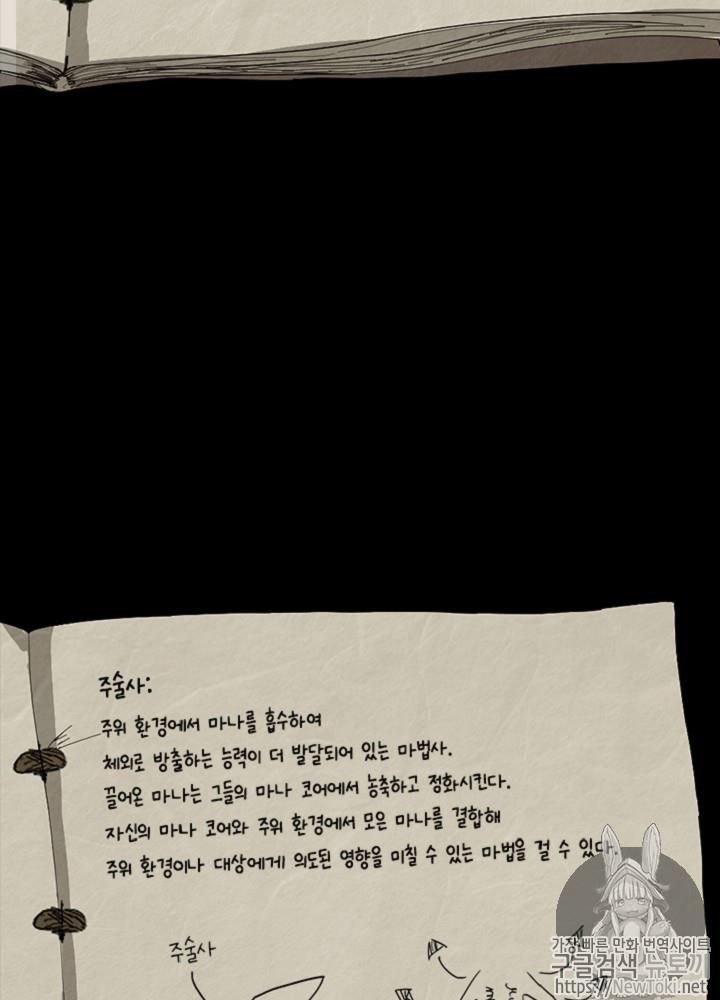 주술사:
주위 환경에서 마나를 흡수하여
체외로 방출하는 능력이 더 발달되어 있는 마법사.
끌어온 마나는 그들의 마나 코어에서 농축하고 정화시킨다.
자신의 마나 코어와 주위 환경에서 모은 마나를 결합해
주위 환경이나 대상에게 의도된 영향을 미칠 수 있는 마법을 걸 수 있다.
주술사
가장빠른 만화 번역사이트
구글검색 뉴토끼
https://NewToki.net